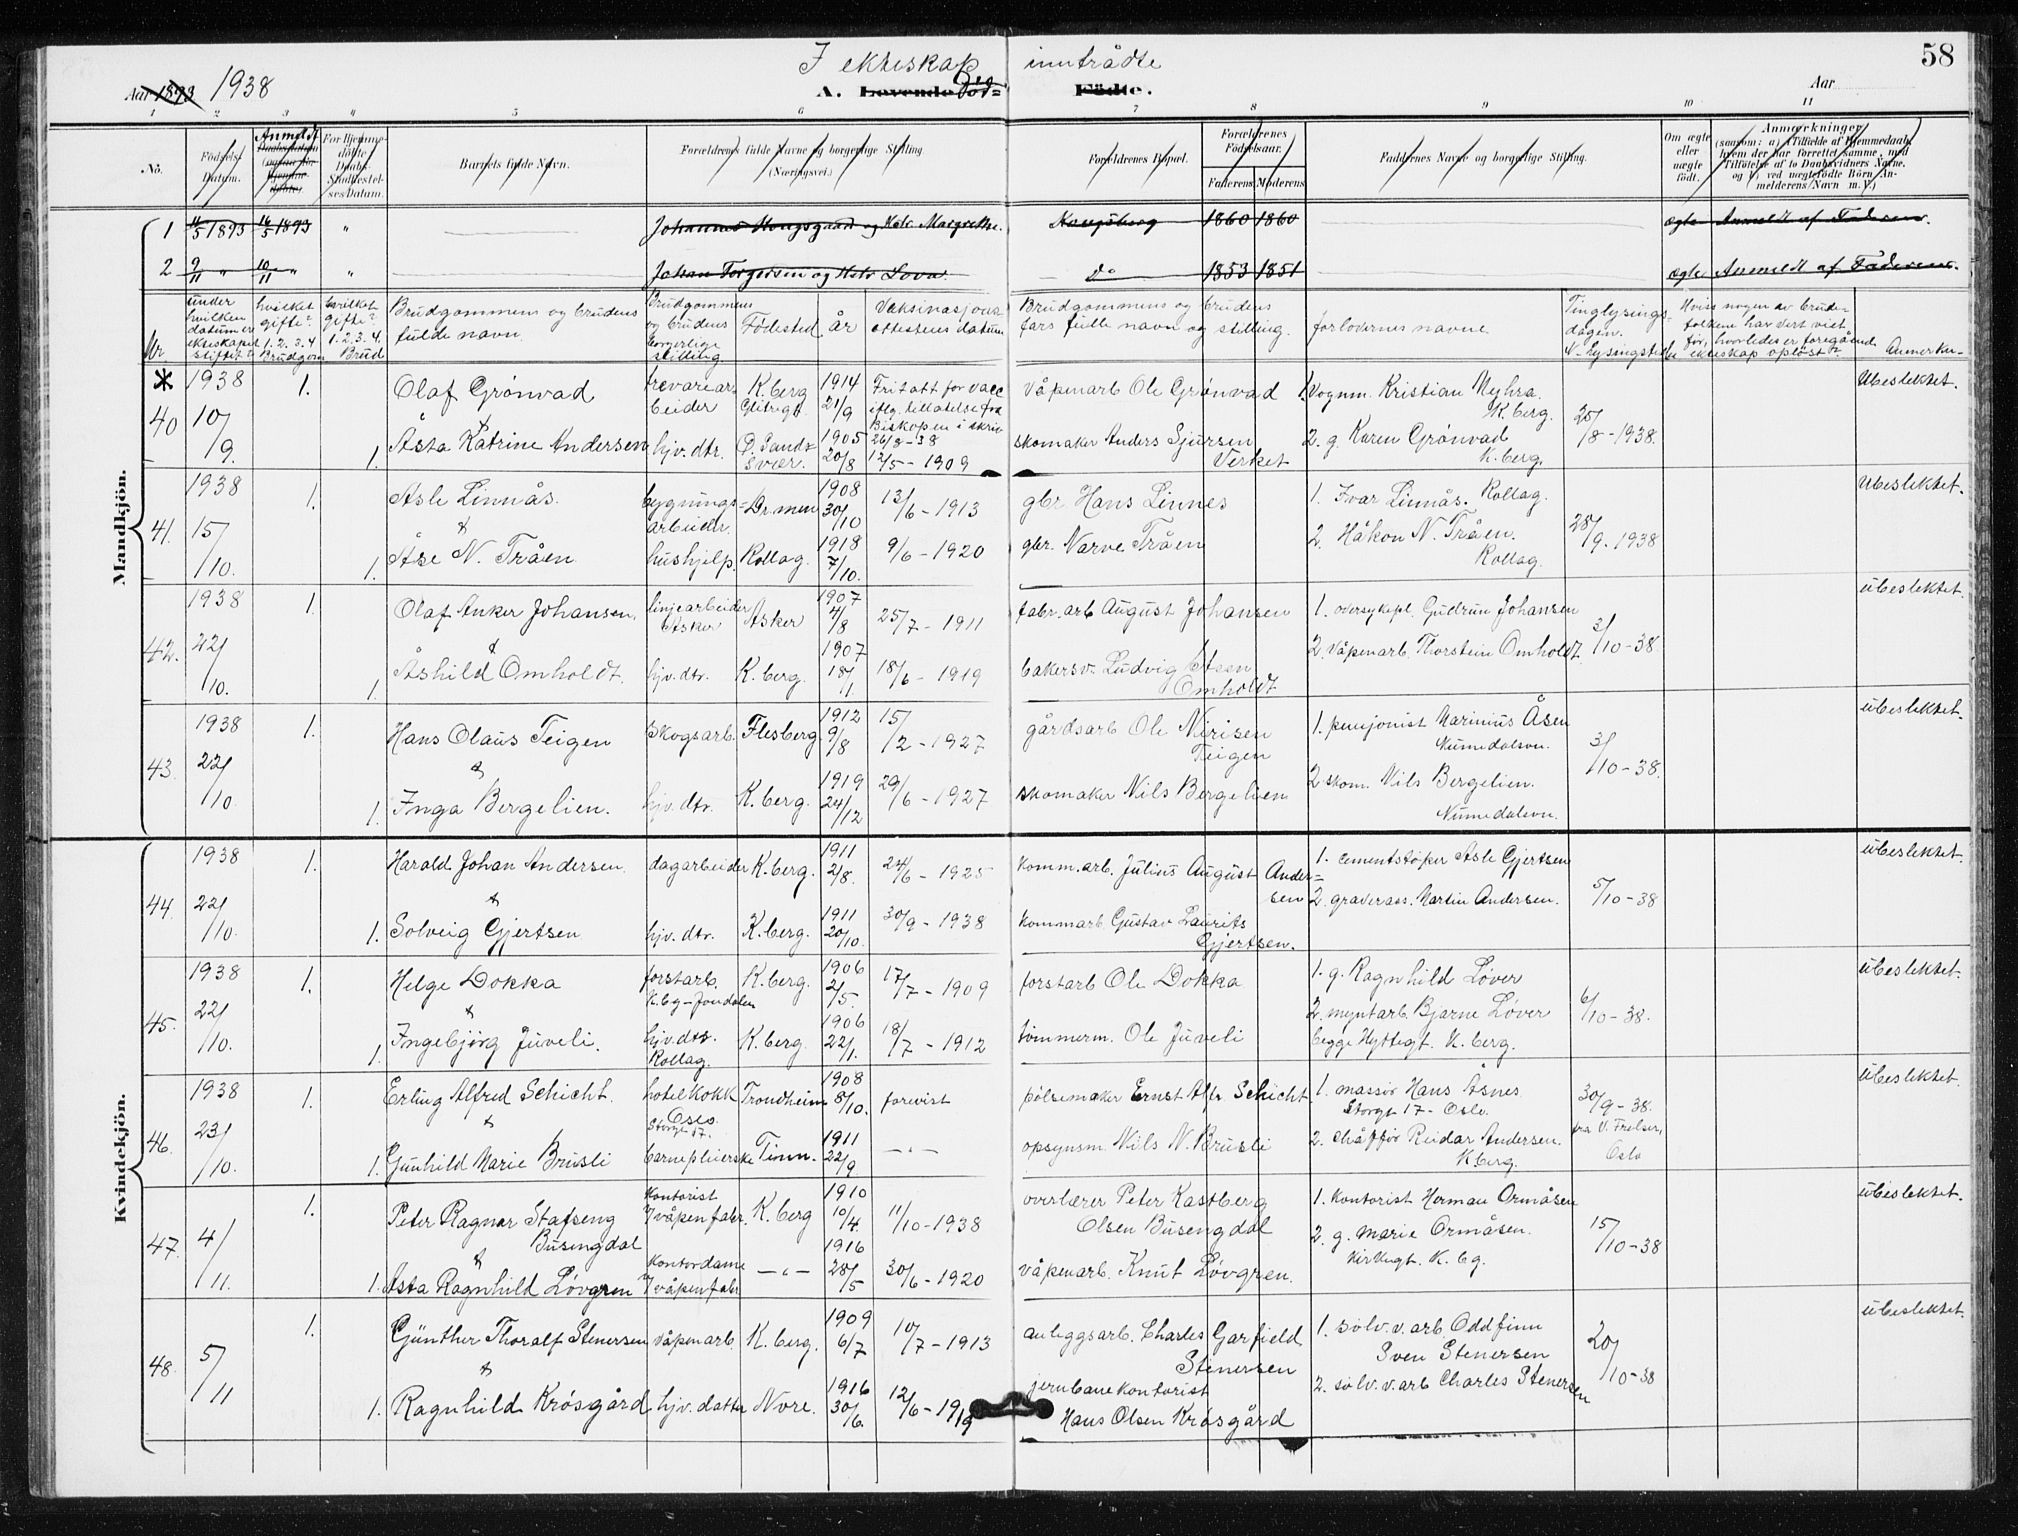 58
I ekteskap inntrådte
Aar 1893 1938
A. Levende Fød-
Fødte.
Aar
1 2 3 4 5 6 7 8 9 10 11
No.
Fødsels-Datum.
Anmeldt
Barnets fulde Navn.
Forældrenes fulde Navne og borgerlige Stilling
(Næringsvei.)
Forældrenes Bopæl.
Forældrenes Fødselsaar.
Faderens Moderens
Faddernes Navne og borgerlige Stilling.
Om ægte eller uægte født.
Anmærkninger
(saasom: a) i Tilfælde af Hjemmedaab,
hvem der har forrettet samme, med
Tilføielse af to Daabsvidners Navne,
og b) ved uægtefødte Børn An-
melderens Navn m. V.)
Mandkjön.
1 11/5 1893 16/5 1893 " Johannes Kongsgaard og Hstr. Margrethe. Kongsberg 1860 1860 ægte Anmeldt af Faderen.
2 9/11 " 10/11 " " Johan Torgersen og Hstr Lova do 1853 1851 ægte Anmeldt af Faderen.
Nr.
under hvilken datum er ekteskapet stiftet?
hvilket gifte? 1. 2. 3. 4 Brudgom
hvilket gifte? 1. 2. 3. 4. Brud
Brudgommens og brudens fulde navn.
Brudgommens og brudens borgerlige stilling
Fødested
år
Vaksinasjons attestens datum
Brudgommens og brudens fars fulle navn og stilling.
forlovernes navne
Tinglysings-dagen.
Hvis nogen av brude-folkene har vert viet før, hvorledes er foregående ekteskap opløst?
Anmerkn-
40 1938 10/9. 1. Olaf Grönvad trevarearbeider K.berg Glitregt 1914 21/9 Fritatt for vacc iflg. tillatelse fra Biskopen i skriv 26/8-38 våpenarb Ole Grönvad 1. Vognm. Kristian Myhra. K.berg. 25/8-1938. Ubeslektet.
1. Åsta Katrine Andersen hjv. dtr. Ø. Sandsvær. 1905 20/8 12/5-1909 skomaker Anders Sjursen Verket 2. g. Karen Grönvad K.berg.
41. 1938 15/10. 1. Asle Linnås. bygningsarbeider. Dr.men 1908 30/10 13/6-1913 gbr Hans Linnes 1. Ivar Linnås. Rollag. 28/9. 1938 Ubeslektet.
&
1. Åse N. Tråen hushjelp. Rollag. 1918 7/10. 9/6-1920 gbr. Narve Tråen 2. Håkon N. Tråen. Rollag.
42. 1938 22/10. 1. Olaf Anker Johansen. linjearbeider Asker Asker 1907 4/8 25/7-1911 fabr.arb August Johansen 1. oversykepl. Gudrun Johansen 3/10-38. ubeslektet.
&
1. Åshild Omholdt. hjv. dtr. K.berg. 1907 18/1 18/6-1919 bakersv. Ludvig Omholdt 2. Våpenarb. Thorstein Omholdt
43. 1938 22/10 1. Hans Olaus Teigen skogsarb. Flesberg 1912 9/8 15/2-1927 gårdsarb Ole Nirisen Teigen 1. pensjonist Marinius Åsen Numedalsvn. 3/10-38. ubeslektet.
&
1. Inga Bergelien. hjv. dtr. K.berg. 1919 24/12 29/6-1927 skomaker Nils Bergelien 2. skom. Nils Bergelien. Numedalsvn.
Kvindekjön.
44. 1938 22/10. 1. Harald Johan Andersen. dagarbeider K.berg. 1911 2/8. 24/6-1925 komm.arb. Julius August Andersen 1. cementstøper Asle Gjertsen 5/10-38 ubeslektet.
&
1. Solveig Gjertsen hjv. dtr. K.berg. 1911 20/10. 30/9-1938 kommarb. Gustav Laurits Gjertsen. 2. graverass. Martin Andersen.
45. 1938 22/10. 1. Helge Dokka forstarb. K.bg-Jondalen K.berg. 1906 2/5. 17/7-1909 forstarb Ole Dokka 1. g. Ragnhild Løver 6/10-38. Ubeslektet.
&
1. Ingebjörg Juveli. hjv. dtr. Rollag. K.berg. 1906 22/1. 18/7-1912 tömmerm. Ole Juveli 2. myntarb. Bjarne Løver begge Hyttegt. K.berg.
46. 1938 23/10. 1. Erling Alfred Schicht. hotelkokk Oslo Storgt 17. Trondheim 1908 8/10. forevist pölsemaker Ernst Alfr. Schicht. 1. massör Hans Åsnes Storgt 17 - Oslo. 30/9-38. fra V. Frelser, Oslo ubeslektet.
&
1. Gunhild Marie Brusli barnepleierske Tinn. 1911 22/9 — " — opsynsm. Nils N. Brusli 2. chåffør Reidar Andersen. K.berg.
47. 4/11. 1. Peter Ragnar Stafseng Busengdal kontorist v/våpenfabr. K.berg 1910 10/4. 11/10-1938 overlærer Peter Kastberg Olsen Busengdal 1. kontorist Herman Ormåsen 15/10-38 ubeslektet.
&
1. Asta Ragnhild Løvgren kontordame v/våpenfabr — " — 1916 28/5 30/6-1920 våpenarb. Knut Løvgren. 2. g. Marie Ormåsen. Kirkegt. K.bg.
48. 5/11 1. Günther Thoralf Stenersen våpenarb. K.berg. 1909 6/7 10/7-1913 anleggsarb. Charles Garfield Stenersen 1. sølv.v. arb. Oddfinn Sven Stenersen 20/10-38 ubeslektet.
&
1. Ragnhild Krösgård hjv. datter Nore. 1916 30/6. 12/6-1919 jernbanekontorist Hans Olsen Krösgård 2. sølv.v. arb Charles Stenersen